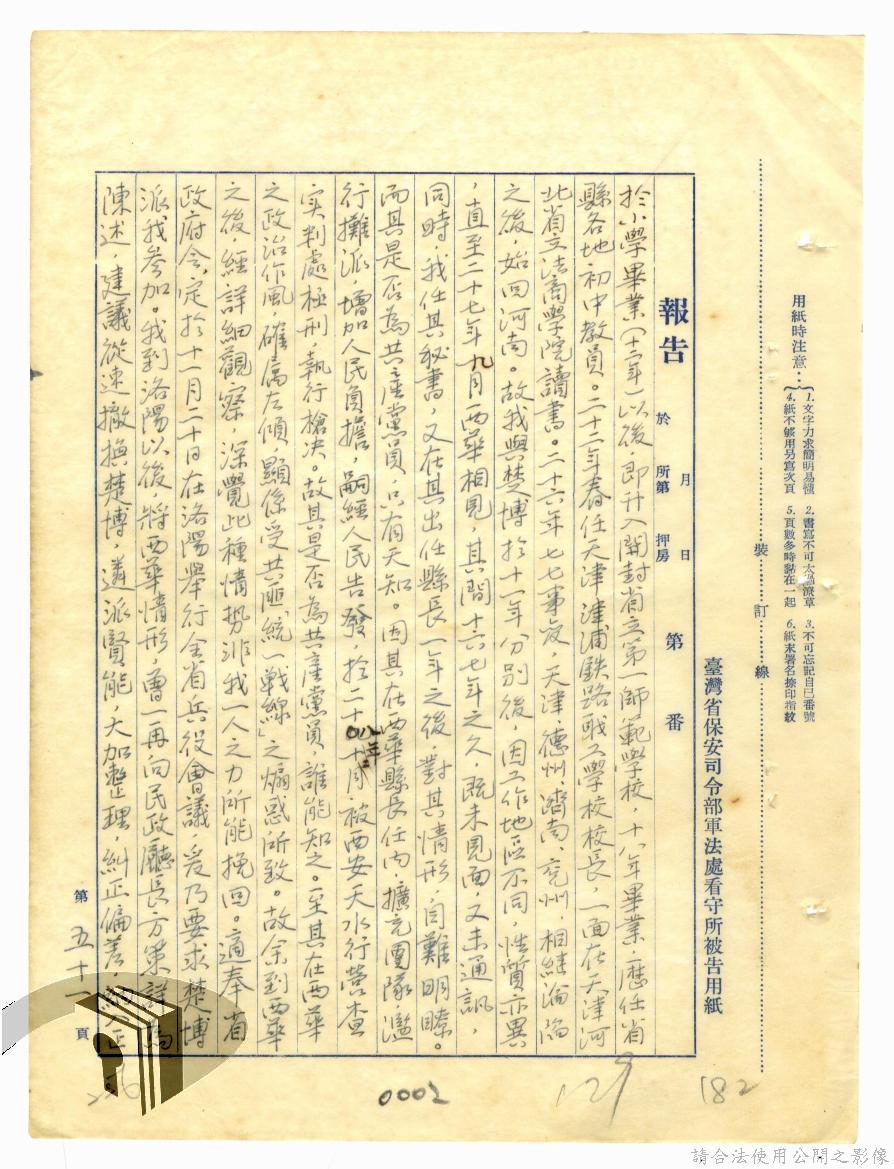 用紙時注意：
1.文字力求簡明易懂 2.書寫不可太過潦草 3.不可忘記自己番號
4.紙不够用另寫次頁 5.頁數多時黏在一起 6.紙末署名捺印指紋
裝 訂 線
臺灣省保安司令部軍法處看守所被告用紙
報告 於 月 日 所第 押房 第 番
於小學畢業（十二年）以後，即升入開封省立第一師範學校，十八年畢業，歷任省
縣各地初中教員。二十二年春任天津津浦鉄路職工學校校長，一面在天津河
北省立法商學院讀書。二十六年七七事变，天津、德州、濟南、兗州，相繼淪陷
之後，始回河南。故我與楚博於十一年分別後，因工作地區不同，性質亦異
，直至二十七年九月西華相見，其間十六七年之久，既未見面，又未通訊，
同時，我任其秘書，又在其出任縣長一年之後，對其情形，自難明瞭。
而其是否為共產黨員，只有天知。因其在西華縣長任内，擴充團隊，濫
行攤派，增加人民負擔，嗣經人民告發，於二十八年二月被西安天水行營查
实判處極刑，執行槍决。故其是否為共產黨員，誰能知之。至其在西華
之政治作風，確屬左傾，顯係受共匪「統一戰線」之煽惑所致。故余到西華
之後，經詳細觀察，深覺此種情勢非我一人之力所能挽回。適奉省
政府令，定於十一月二十日在洛陽舉行全省兵役會議，爰乃要求楚博
派我参加。我到洛陽以後，將西華情形，曾一再向民政廳長方策詳為
陳述，建議從速撤換楚博，遴派賢能，大加整理，糾正偏差，納入正
第五十一頁
0002
129
182
請合法使用公開之影像